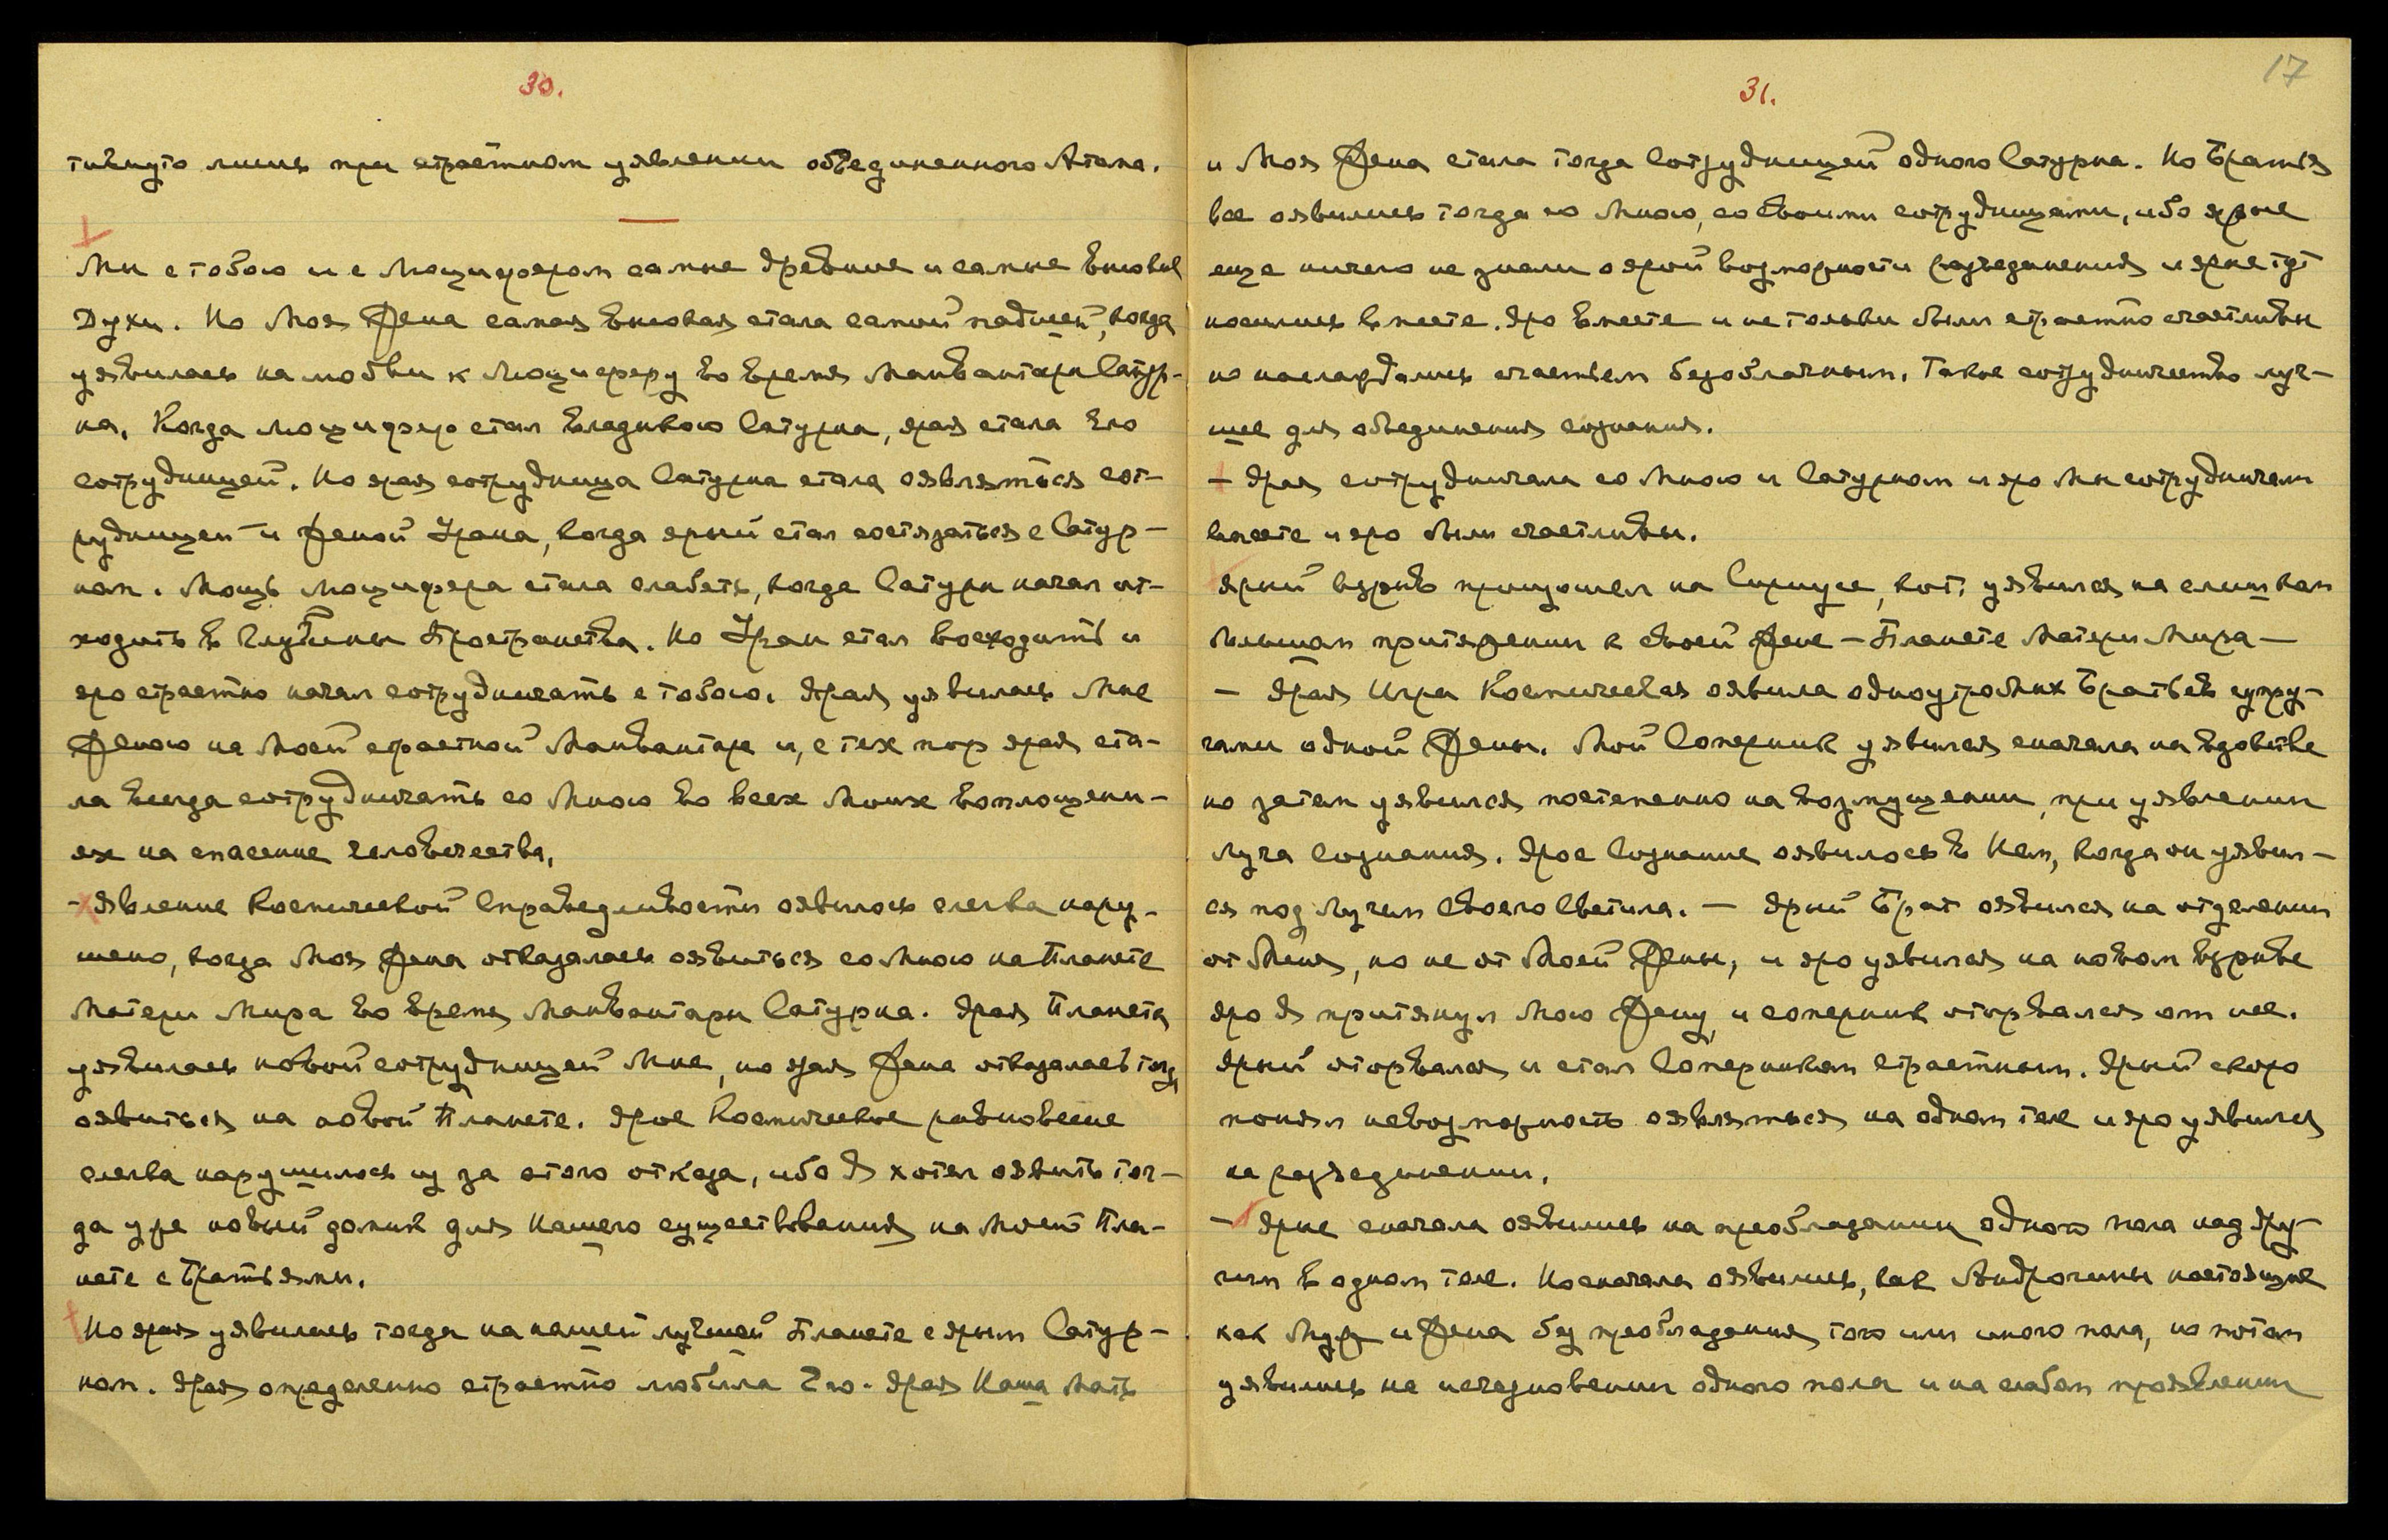 30.
тигнуто лишь при страстном уявлении объединенного Атома.
Мы с тобою и с Люцифером самые древние и самые высокие
Духи. Но Моя Жена самая высокая стала самой падшей, когда
уявилась на любви к Люциферу во время Манвантары Сатур-
на. Когда Люцифер стал Владыкою Сатурна, ярая стала Его
сотрудницей. Но ярая сотрудница Сатурна стала оявляться сот-
рудницей и Женой Урана, когда ярый стал состязаться с Сатур-
ном. Мощь Люцифера стала слабеть, когда Сатурн начал от-
ходить в Глубины Пространства. Но Уран стал восходить и
яро страстно начал сотрудничать с тобою. Ярая уявилась Мне
Женою на Моей страстной Манвантаре и, с тех пор ярая ста-
ла всегда сотрудничать со Мною во всех Моих воплощени-
ях на спасение человечества.
- Явление Космической Справедливости оявилось слегка нару-
шено, когда Моя Жена отказалась оявиться со Мною на Планете
Матери Мира во время Манвантары Сатурна. Ярая Планета
уявилась новой сотрудницей Мне, но ярая Жена отказалась тогда
оявиться на новой Планете. Ярое Космическое равновесие
слегка нарушилось из за этого отказа, ибо Я хотел оявить тог-
да уже новый домик для Нашего существования на Моей Пла-
нете с Братьями.
Но ярая уявилась тогда на нашей лучшей Планете с ярым Сатур-
ном. Ярая определенно страстно любила Его. Ярая Наша Мать
17
31.
и Моя Жена стала тогда Сотрудницей одного Сатурна. Но Братья
все оявились тогда со Мною, со своими сотрудницами, ибо ярые
еще ничего не знали о ярой возможности разъединения и ярые тут
носились вместе. Яро вместе и не только были страстно счастливы
но наслаждались счастьем безоблачным. Такое сотрудничество луч-
шее для объединения сознания.
- Ярая сотрудничала со Мною и Сатурном и яро Мы сотрудничали
вместе и яро были счастливы.
Ярый взрыв произошел на Сириусе, кот. уявился на слишком
большом притяжении к своей Жене - Планете Матери Мира -
- Ярая Игра Космическая оявила одноутробных Братьев супру-
гами одной Жены. Мой Соперник уявился сначала на вдовстве
но затем уявился постепенно на возмущении, при уявлении
Луча Сознания. Ярое Сознание оявилось в Нем, когда он уявил-
ся под Лучом Своего Светила. - Ярый Брат оявился на отделении
от Меня, но не от Моей Жены, и яро уявился на новом взрыве
яро Я притянул Мою Жену, и соперник оторвался от нее.
Ярый оторвался и стал Соперником Страстным. Ярый скоро
понял невозможность оявляться на одном теле и яро уявился
на разъединении.
- Ярые сначала оявились на преобладании одного пола над дру-
гим в одном теле. Но сначала оявились, как Андрогины настоящие
как Муж и Жена без преобладания того или иного пола, но потом
уявились на исчезновении одного пола и на слабом проявлении